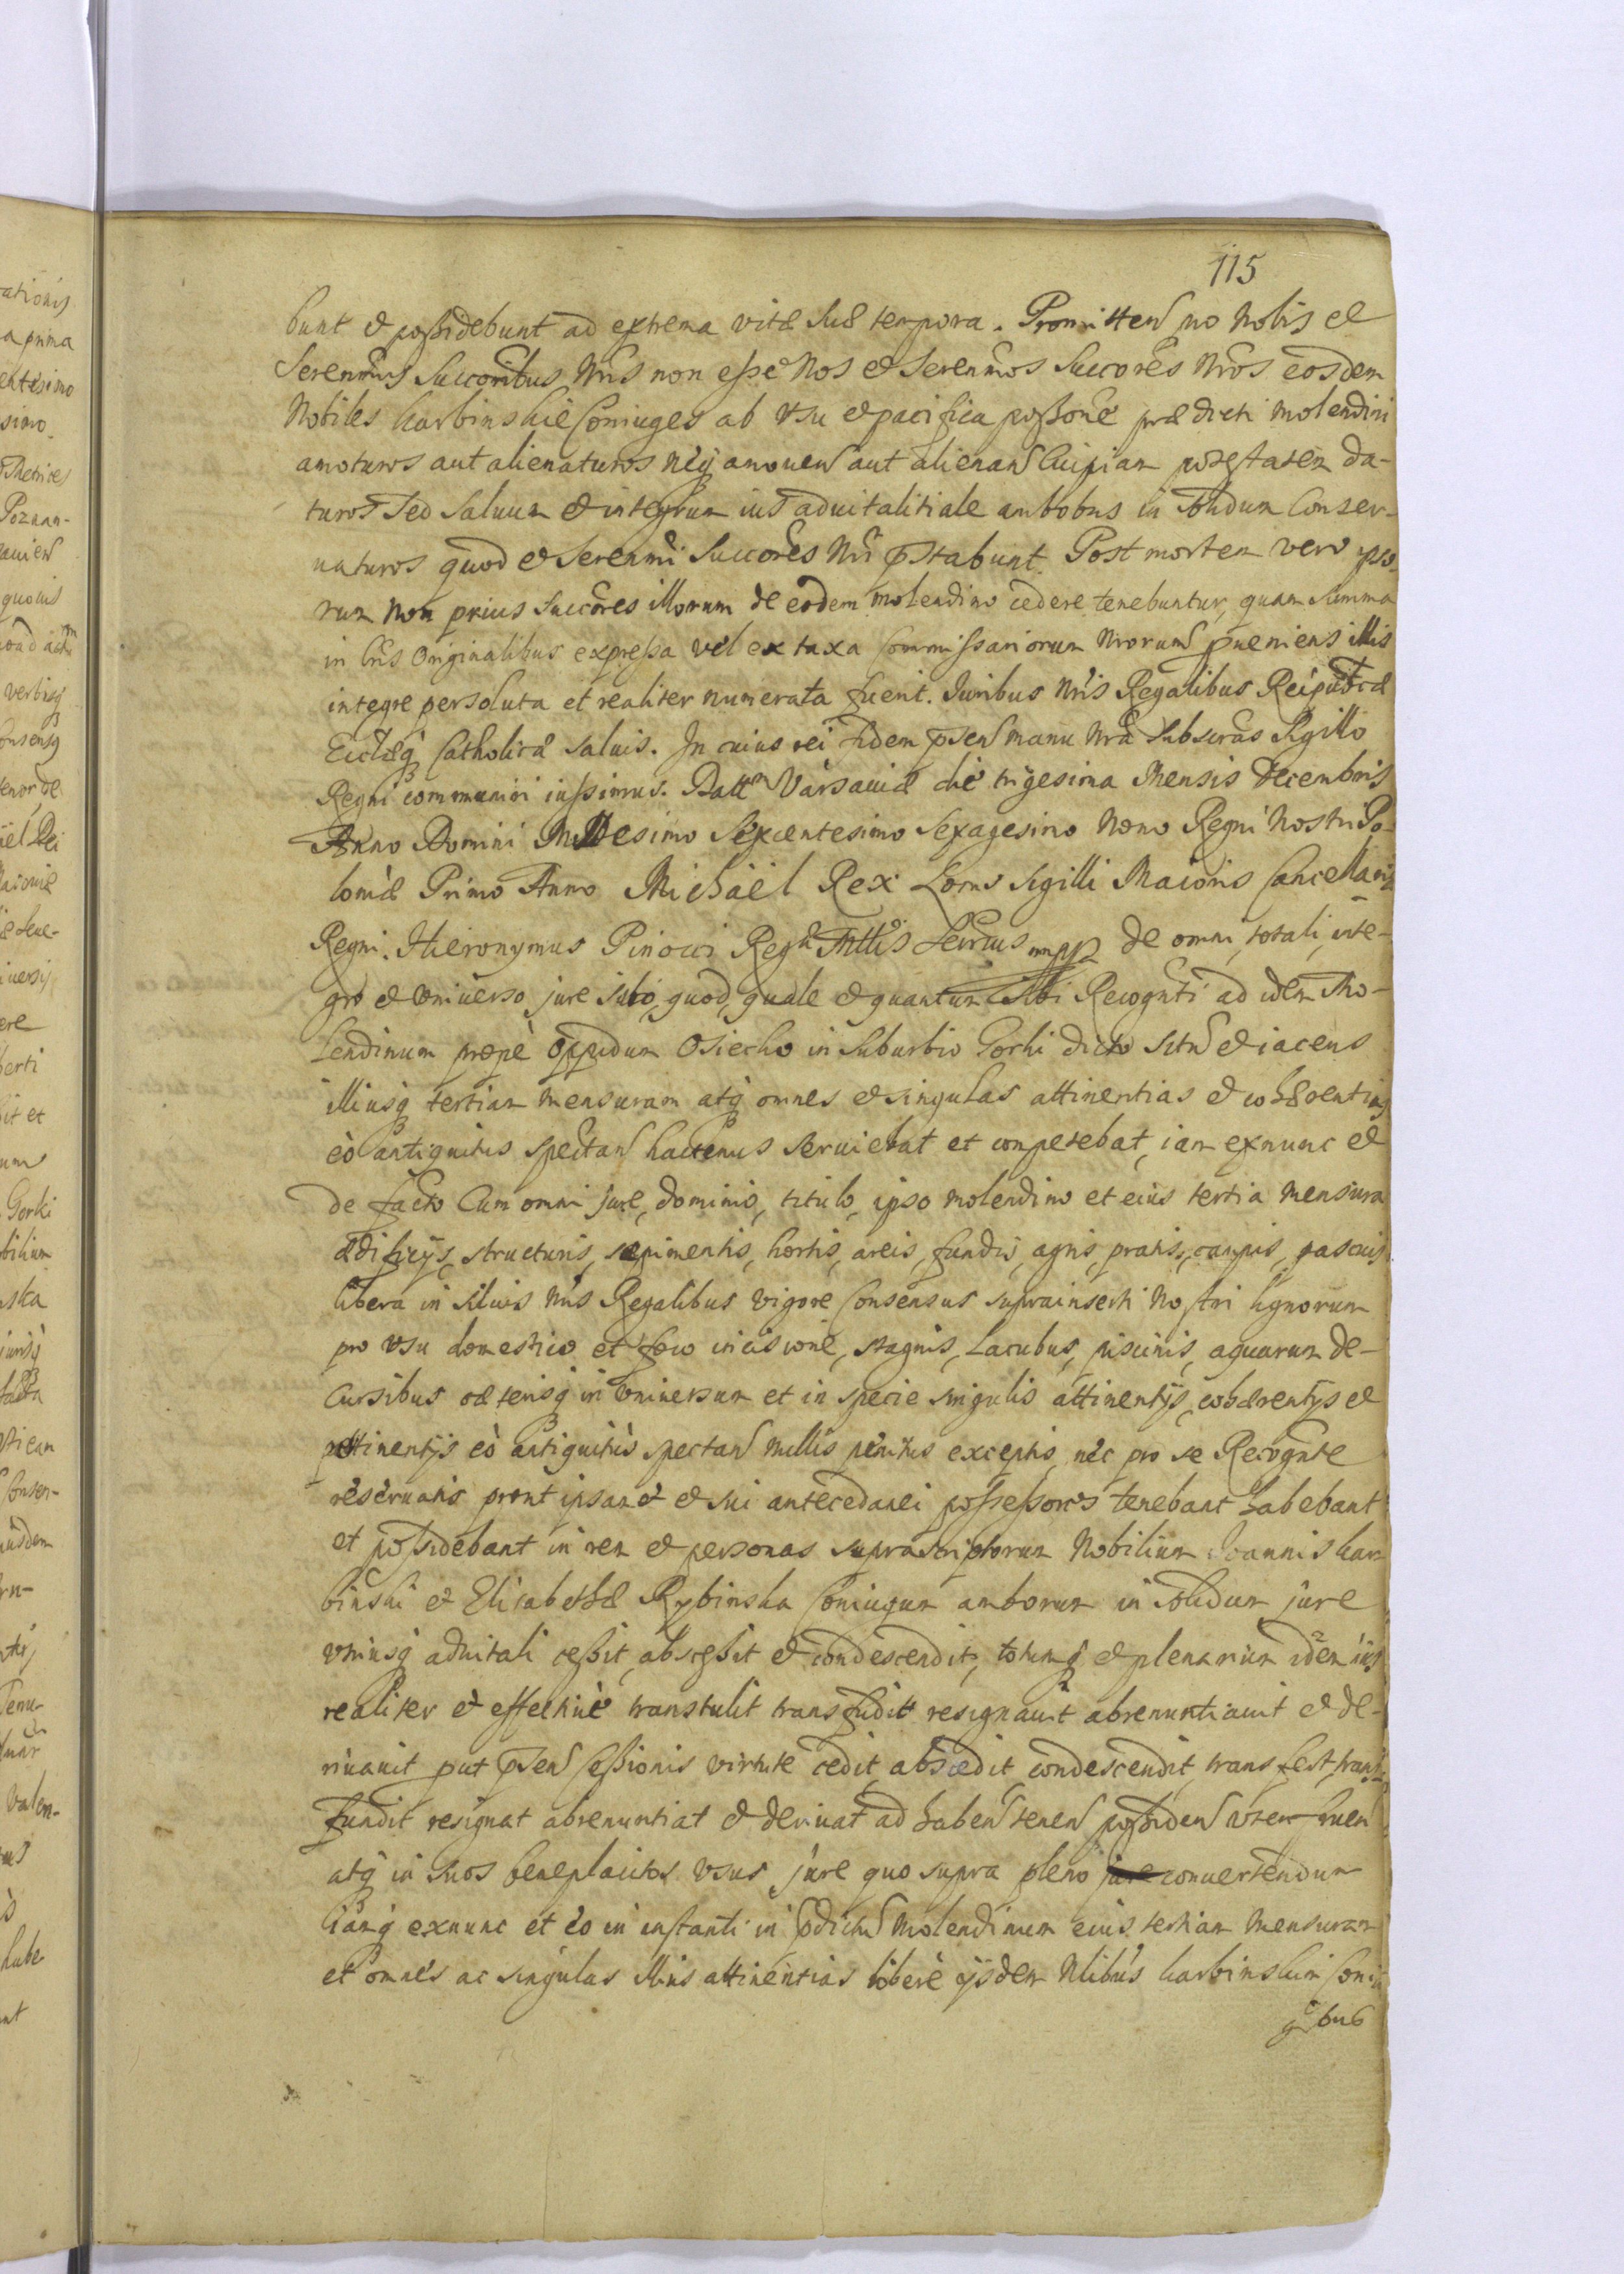 115
bunt et possidebunt ad extrema vitæ suæ tempora. Promitten pro Nobis et
Serenmis Succoribus Nris non esse Nos et Serenmos Succores Nros eosdem
Nobiles Karbinskie Coniuges ab vsu et pacifica possone prædicti molendini
amoturos aut alienaturos neq amouen aut alienan cuipiam potestatem da-
turos sed saluum et integrum ius aduitalitiale ambobus in solidum conser-
uaturos quod et Serenmi Succores Nri pstabunt. Post mortem vero ipso-
rum non prius succores illorum de eodem molendino cedere tenebuntur, quam summa
in lris Originalibus expressa vel ex taxa Commissariorum Nrorum pueniens illis
integre persoluta et realiter numerata fuerit. Iuribus Nris Regalibus Reipublcæ
Ecclæq Catholicæ saluis. In cuius rei fidem psen manu Nra subscras Sigillo
Regni communiri iussimus. Datt Varsauiæ die trigesima Mensis Decembris
Anno Domini Millesimo Sexcentesimo Sexagesimo Nono Regni Nostri Po-
loniæ Primo Anno Michäel Rex Locus Sigilli Maioris Cancellariæ
Regni. Hieronymus Pinocci Regæ Mttis Secrius mpp de omni, totali, inte-
gro et vniuerso jure suo, quod, quale et quantum sibi Recognti ad idem Mo-
lendinum propè Oppidum Osiecko in suburbio Gorki dicto situ et iacens
illiusq tertiam mensuram atq omnes et singulas attinentias et cohærentias
eò antiquitus spectan hactenus seruiebat et competebat, iam exnunc et
de facto cum omni jure, dominio, titulo, ipso molendino et eius tertia mensura
ædificijs, structuris, sæpimentis, hortis, areis, fundis, agris, pratis, campis, pascuis
libera in siluis Nris Regalibus vigore Consensus suprainserti Nostri lignorum
pro vsu domestico et foco incisione, stagnis, lacubus, piscinis, aquarum de-
cursibus cæterisq in vniuersum et in specie singulis attinentijs, cohærentijs et
pertinentijs eò antiquitùs spectan nullis penitus exceptis, nec pro se Recognte
reseruatis prout ipsamet et sui antecedanei possessores tenebant habebant
et possidebant in rem et personas suprascriptorum Nobilium Joannis Kar
binski et Elisabethæ Rybinska Coniugum amborum in solidum jure
vniusq aduitali cessit, abscessit et condescendit, totumq et plenarium idem ius
realiter et effectiuè transtulit transfudit resignauit abrenuntiauit et de-
riuauit put psen Cessionis virtute cedit, abscedit condescendit, transfert, trans-
fundit resignat abrenuntiat et deriuat ad haben tenen possiden vten fruen
atq in suos beneplacitos vsus jure quo supra pleno conuertendum
iamq exnunc et eo in instanti in pdictu Molendinum eius tertiam mensuram
et omnes ac singulas illius attinentias liberè ijsdem Nlibus Karbinskim Coniu
gibus